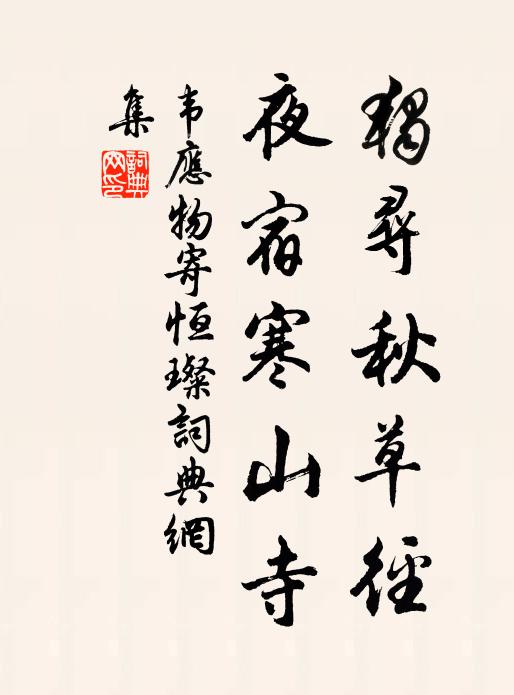 獨尋秋草徑
夜宿寒山寺
韦應物寄恒璨詞典網
集
詞典
网印